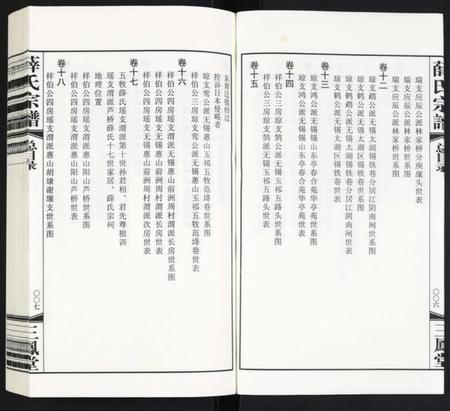 薛氏宗譜
总目录
〇〇六
三鳳堂
瑞支应辰公派林家桥分居廉头世表
瑞支应辰公派林家桥世系图
瑞支应辰公派林家桥世表
卷十二
琼支鹉公派无锡太湖锡铁巷分居江阴南闸世系图
琼支鹤公派无锡太湖锡铁巷分居江阴南闸世表
琼支鹤公派无锡太湖区锡铁巷世系图
琼支鹤公派无锡太湖区锡铁巷世表
卷十三
琼支鸿公派无锡山东亭春合苑华亭苑世系图
琼支鸿公派无锡山东亭春合苑华亭苑世表
卷十四
祥伯公三房琼支鸾公派无锡玉祁五路头世系图
卷十五
祥伯公三房琼支鸾公派无锡玉祁五路头世表
东青迁徙经过
控诉日本侵略者
琼支鸾公派无锡惠山玉祁五牧范埄巷世系图
祥伯公三房琼支鸾公派无锡惠山玉祁五牧范埄巷世表
卷十六
祥伯公四房瑶支渭派无锡惠山前洲周村渭派长房世系图
祥伯公四房瑶支无锡惠山前洲周村渭派长房世表
祥伯公四房瑶支无锡惠山前洲周村渭派次房世表
卷十七
五牧薛氏瑶支渭派第十世孙君相、君先尊祖训
瑶支渭派芦桥薛氏十七世家居、薛氏宗祠
地理位置
祥伯公四房瑶支渭派惠山阳山芦桥世系图
祥伯公四房瑶支渭派惠山阳山芦桥世表
卷十八
祥伯公四房瑶支渭派惠山胡埭谢堰支世系图
薛氏宗譜
总目录
〇〇七
三鳳堂